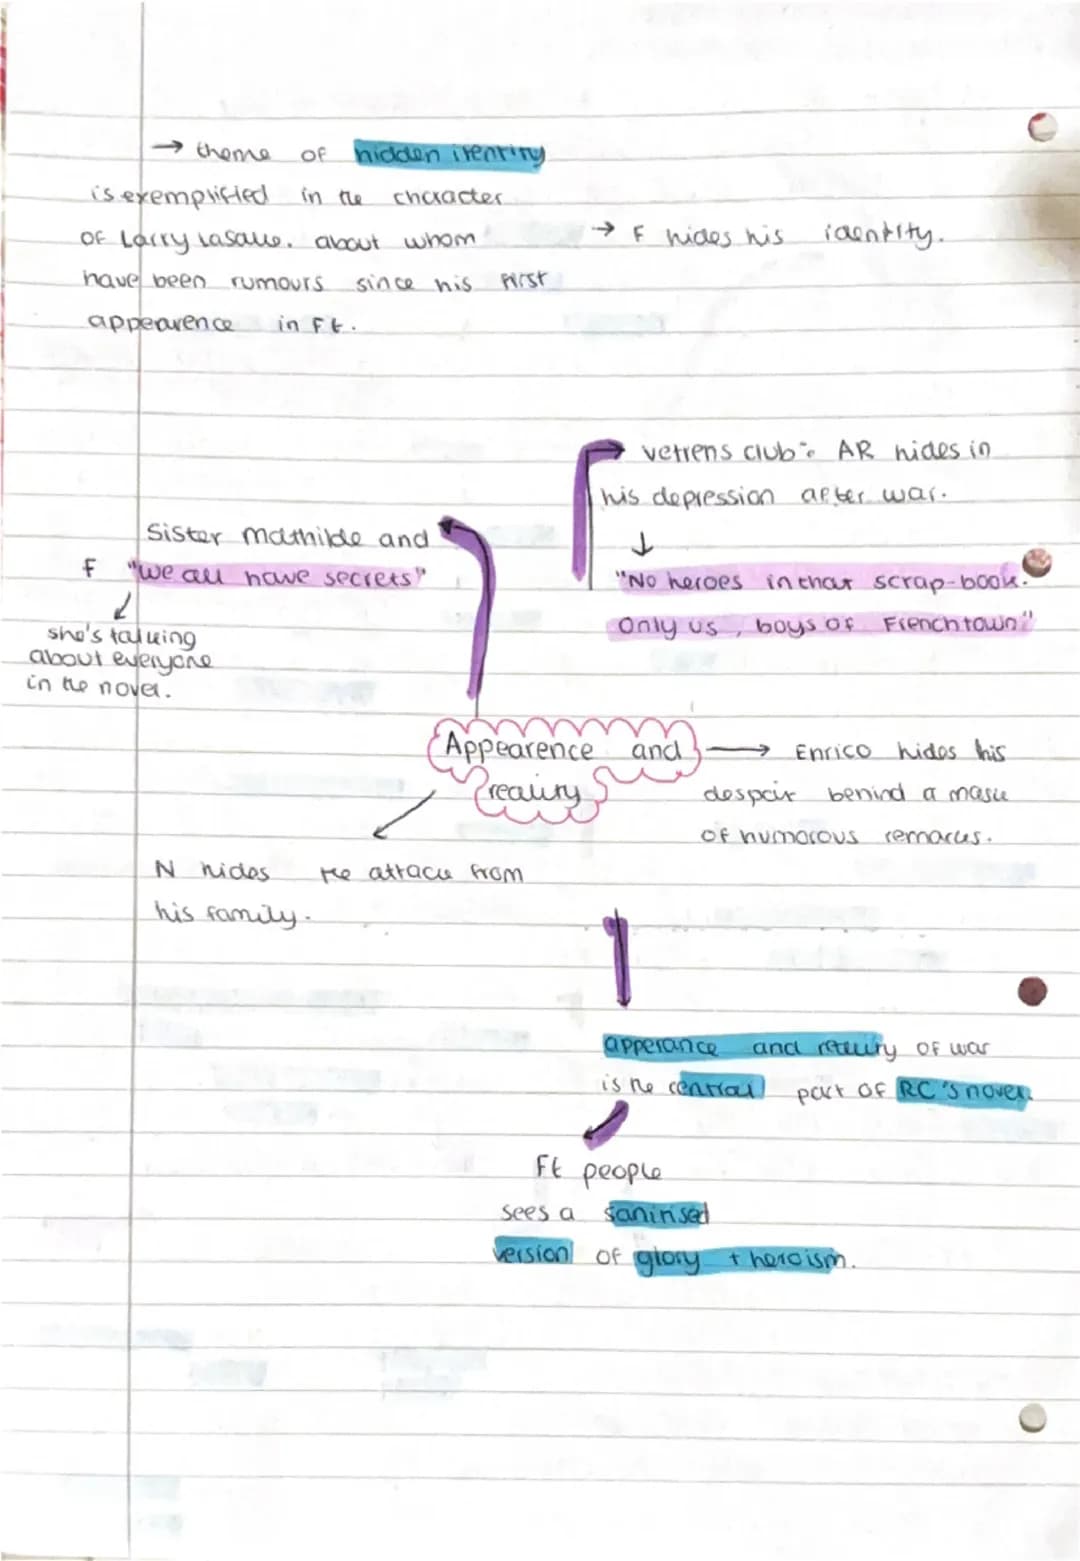 → theme of hidden itentity
is exemplified in the character
of Larry Lasalle. about whom
have been rumours since his first
appearence in Ft.
→ F hides his identity.
→ vetrens club: AR hides in
his depression after war.
↓
"No heroes in that scrap-book.
Only us, boys of Frenchtown"
Sister mathilde and
F "we all have secrets"
she's talking
about everyone
in the novel.
Appearence and
reality
→ Enrico hides his
despair behind a mask
of humorous remarks.
N hides the attack from
his family.
apperance and reality of war
is the central part of RC's novel.
Ft people
sees a sanitised
version of glory + heroism.